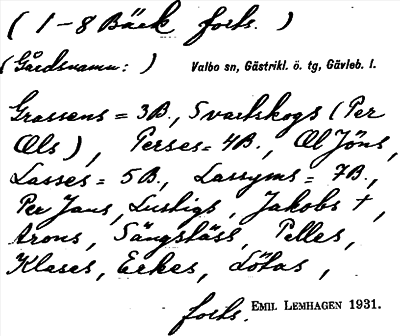 ( 1-8 Bäck forts. )
(Gårdsnamn: ) Valbo sn, Gästrikl. ö. tg, Gävleb. l.
Grassens = 3B., Svartskogs (Per
Ols), Perses = 4B., Ol Jöns,
Lasses = 5B., Lassyms = 7B.,
Per Jans, Lustigs, Jakobs †,
Arons, Sängsläss, Pelles,
Klases, Erkes, Lötas,
forts. EMIL LEMHAGEN 1931.